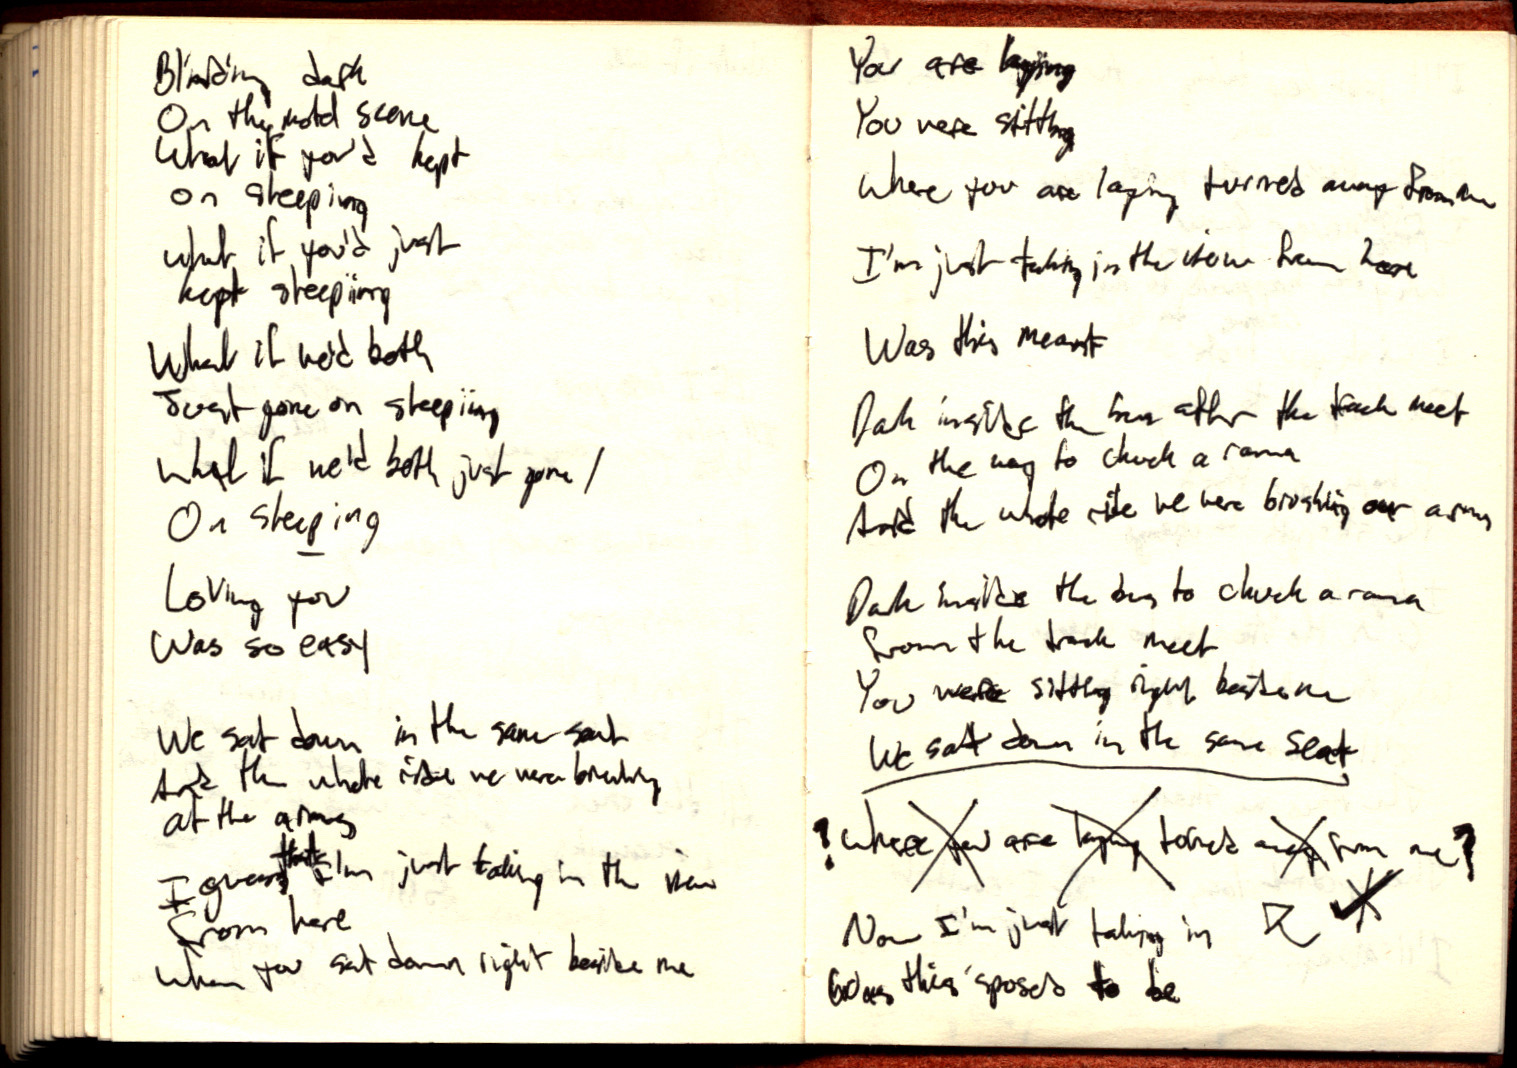 Blinding dark
On the motd scene
What if you'd kept
on sleepiing
what if you'd just
kept sleepiing
What if we'd both
Just gone on sleepiing
what if we'd both just gone /
On sleeping
Loving you
Was so easy
We sat down in the same seat
And the whole ride we were brushing
at the arms
I guess that I'm just taking in the view
from here
when you sat down right beside me
You are laying
You were sitting
where you are laying turned away from me
I'm just taking in the view from here
Was this meant
Dark inside the bus after the track meet
On the way to chuck a rama
And the whole ride we were brushing our arms
Dark inside the bus to chuck a rama
from the track meet
You were sitting right beside me
We sat down in the same seat
? where you are laying turned away from me ?
Now I'm just taking in
Was this 'sposed to be